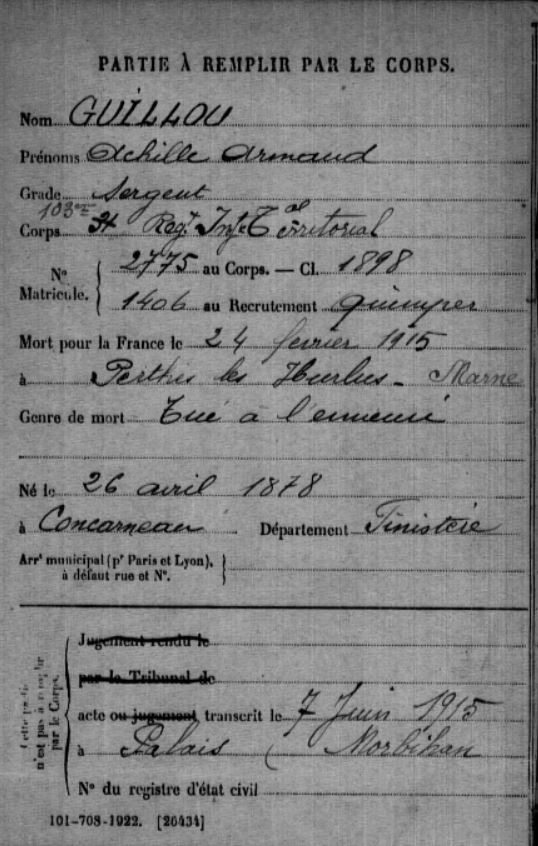 PARTIE À REMPLIR PAR LE CORPS.
Nom GUILLOU
Prénoms Achille Armand
Grade Sergent
103me
Corps Regt Inf Territorial
No Matricule. 2775 au Corps. — Cl. 1898
1406 au Recrutement Quimper
Mort pour la France le 24 février 1915
à Perthes les Hurlus - Marne
Genre de mort Tué à l'ennemi
Né le 26 avril 1878
à Concarneau Département Finistère
Arrt municipal (pr Paris et Lyon),
à défaut rue et No.
Cette partie
n'est pas à remplir
par le Corps.
Jugement rendu le
par le Tribunal de
acte ou jugement, transcrit le 7 Juin 1915
à Palais ( Morbihan
No du registre d'état civil
101-708-1922. [26434]